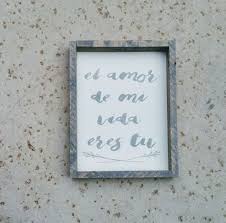 el amor
de mi
vida
eres tu